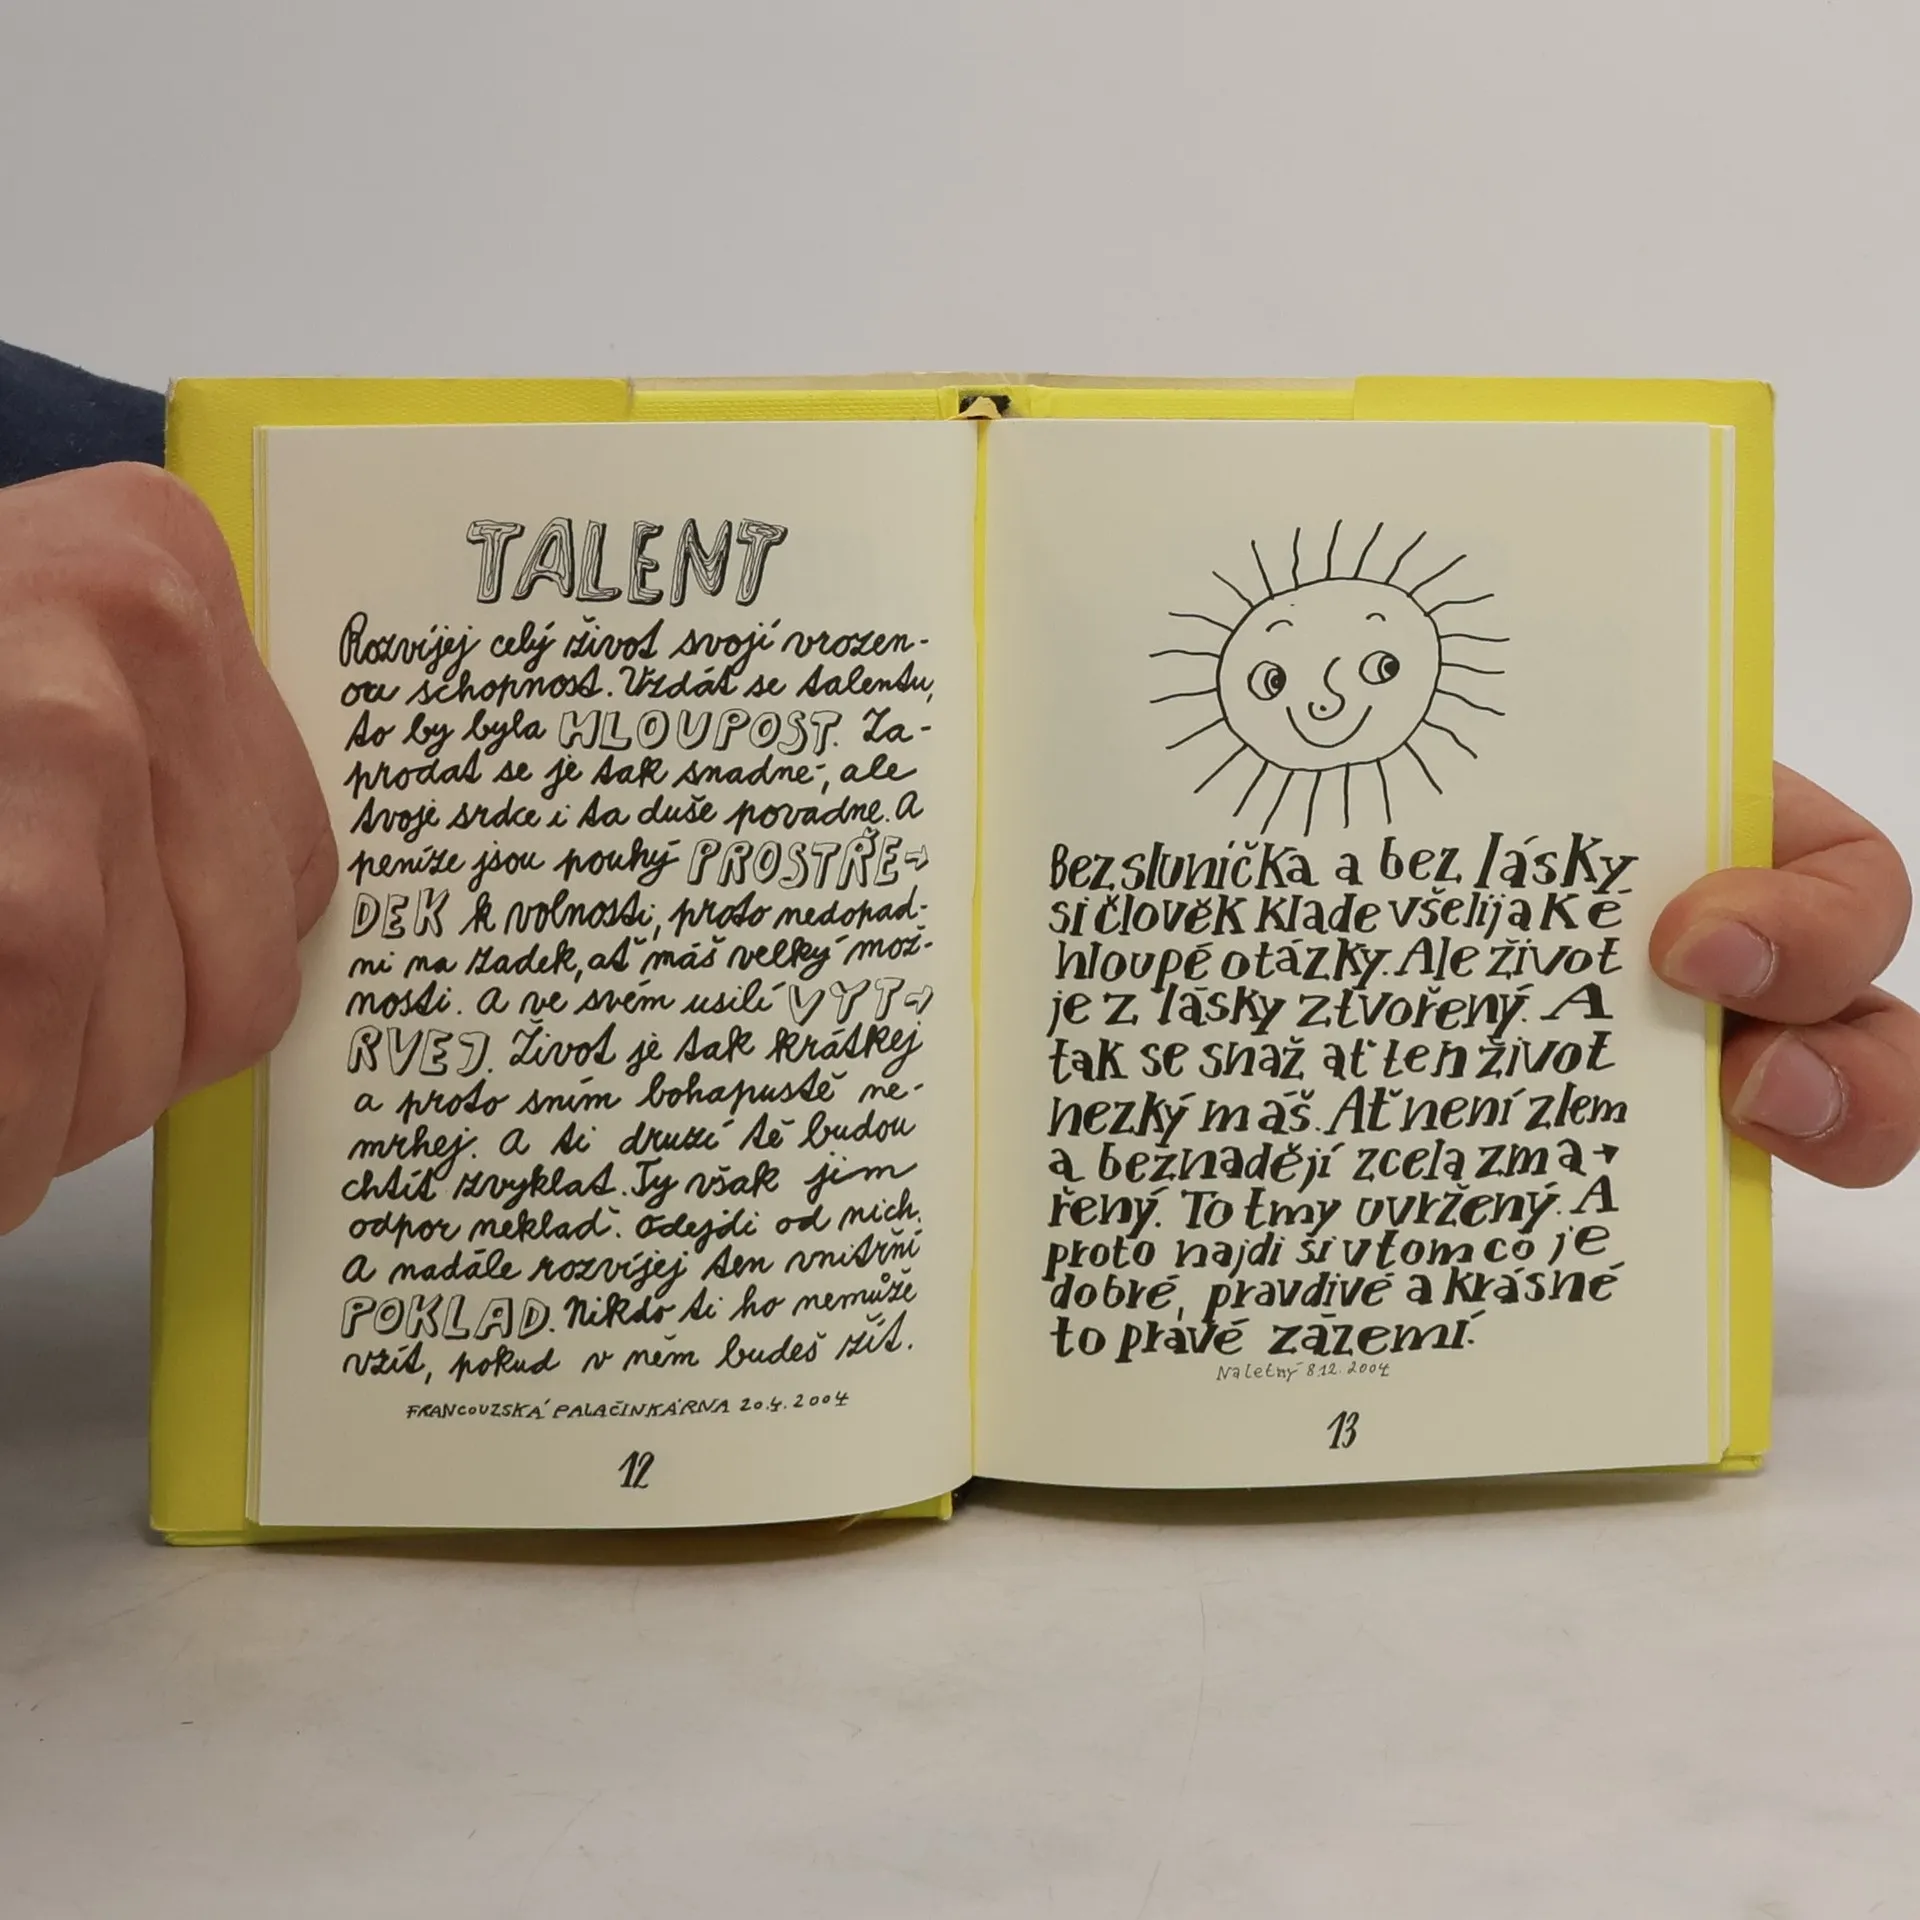 TALENT
Rozvíjej celý život svojí vrozen-
ou schopnost. Vzdát se talentu,
to by byla HLOUPOST. Za-
prodat se je tak snadné, ale
tvoje srdce i ta duše povadne. A
peníze jsou pouhý PROSTŘE→
DEK k volnosti, proto nedopad-
ni na zadek, ať máš velký mož-
nosti. A ve svém usilí VYT→
RVEJ. Život je tak krátkej
a proto sním bohapustě ne-
mrhej. A ti druzí tě budou
chtít zvyklat. Ty však jim
odpor neklaď. Odejdi od nich.
A nadále rozvíjej ten vnitřní
POKLAD. Nikdo ti ho nemůže
vzít, pokud v něm budeš žít.
FRANCOUZSKÁ PALAČINKÁRNA 20.4.2004
12
Bez sluníčka a bez lásky
si člověk klade všelijaké
hloupé otázky. Ale život
je z lásky ztvořený. A
tak se snaž ať ten život
nezký máš. Ať není zlem
a beznadějí zcela zma→
řený. To tmy uvržený. A
proto najdi si v tom co je
dobré, pravdivé a krásné
to právé zázemí.
Na letný 8.12.2004
13